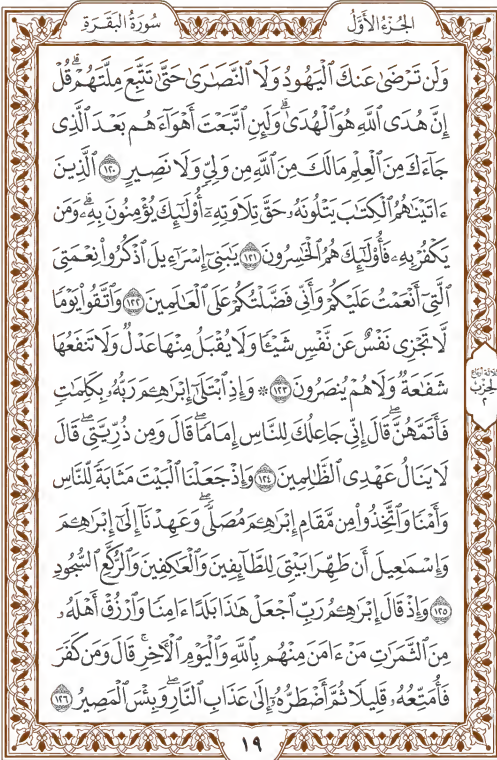 الجُزءُ الأَوَّلُ سُورَةُ البَقَرَةِ
وَلَن تَرۡضَىٰ عَنكَ ٱلۡيَهُودُ وَلَا ٱلنَّصَٰرَىٰ حَتَّىٰ تَتَّبِعَ مِلَّتَهُمۡۗ قُلۡ
إِنَّ هُدَى ٱللَّهِ هُوَ ٱلۡهُدَىٰۗ وَلَئِنِ ٱتَّبَعۡتَ أَهۡوَآءَهُم بَعۡدَ ٱلَّذِي
جَآءَكَ مِنَ ٱلۡعِلۡمِ مَا لَكَ مِنَ ٱللَّهِ مِن وَلِيّٖ وَلَا نَصِيرٍ ١٢٠ ٱلَّذِينَ
ءَاتَيۡنَٰهُمُ ٱلۡكِتَٰبَ يَتۡلُونَهُۥ حَقَّ تِلَاوَتِهِۦٓ أُوْلَٰٓئِكَ يُؤۡمِنُونَ بِهِۦۗ وَمَن
يَكۡفُرۡ بِهِۦ فَأُوْلَٰٓئِكَ هُمُ ٱلۡخَٰسِرُونَ ١٢١ يَٰبَنِيٓ إِسۡرَٰٓءِيلَ ٱذۡكُرُواْ نِعۡمَتِيَ
ٱلَّتِيٓ أَنۡعَمۡتُ عَلَيۡكُمۡ وَأَنِّي فَضَّلۡتُكُمۡ عَلَى ٱلۡعَٰلَمِينَ ١٢٢ وَٱتَّقُواْ يَوۡمٗا
لَّا تَجۡزِي نَفۡسٌ عَن نَّفۡسٖ شَيۡـٔٗا وَلَا يُقۡبَلُ مِنۡهَا عَدۡلٞ وَلَا تَنفَعُهَا
شَفَٰعَةٞ وَلَا هُمۡ يُنصَرُونَ ١٢٣ ۞ وَإِذِ ٱبۡتَلَىٰٓ إِبۡرَٰهِـۧمَ رَبُّهُۥ بِكَلِمَٰتٖ
فَأَتَمَّهُنَّۖ قَالَ إِنِّي جَاعِلُكَ لِلنَّاسِ إِمَامٗاۖ قَالَ وَمِن ذُرِّيَّتِيۖ قَالَ
لَا يَنَالُ عَهۡدِي ٱلظَّٰلِمِينَ ١٢٤ وَإِذۡ جَعَلۡنَا ٱلۡبَيۡتَ مَثَابَةٗ لِّلنَّاسِ
وَأَمۡنٗا وَٱتَّخِذُواْ مِن مَّقَامِ إِبۡرَٰهِـۧمَ مُصَلّٗىۖ وَعَهِدۡنَآ إِلَىٰٓ إِبۡرَٰهِـۧمَ
وَإِسۡمَٰعِيلَ أَن طَهِّرَا بَيۡتِيَ لِلطَّآئِفِينَ وَٱلۡعَٰكِفِينَ وَٱلرُّكَّعِ ٱلسُّجُودِ
١٢٥ وَإِذۡ قَالَ إِبۡرَٰهِـۧمُ رَبِّ ٱجۡعَلۡ هَٰذَا بَلَدًا ءَامِنٗا وَٱرۡزُقۡ أَهۡلَهُۥ
مِنَ ٱلثَّمَرَٰتِ مَنۡ ءَامَنَ مِنۡهُم بِٱللَّهِ وَٱلۡيَوۡمِ ٱلۡأٓخِرِۚ قَالَ وَمَن كَفَرَ
فَأُمَتِّعُهُۥ قَلِيلٗا ثُمَّ أَضۡطَرُّهُۥٓ إِلَىٰ عَذَابِ ٱلنَّارِۖ وَبِئۡسَ ٱلۡمَصِيرُ ١٢٦
ثلاثة أرباع
الحزب
٢
١٩